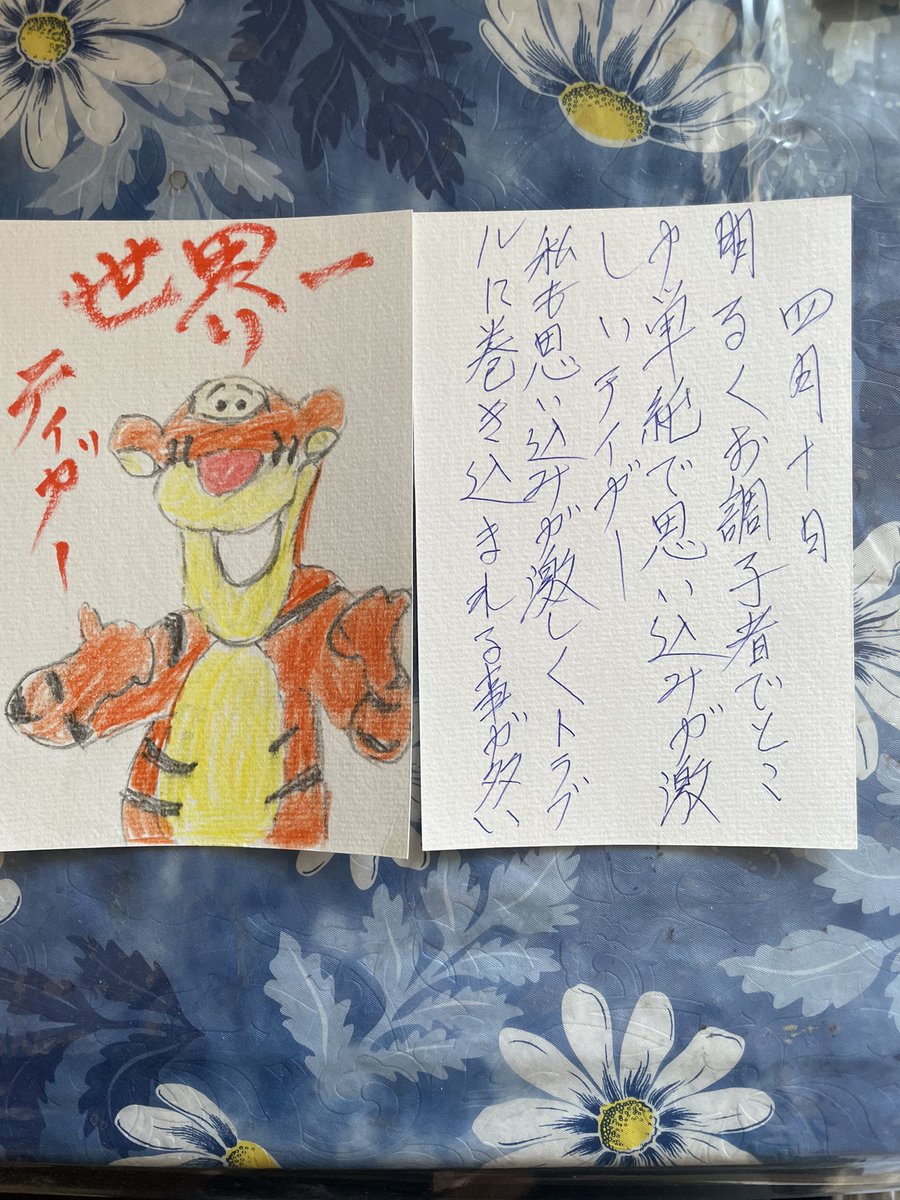 世界一
ティガー
四月十日
明るくお調子者でとこ
単純で思い込みが激
しいティガー
私も思い込みが激しくトラブ
ルに巻き込まれる事が多い